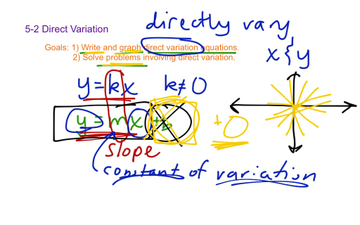 directly vary
5-2 Direct Variation
Goals: 1) Write and graph direct variation equations.
2) Solve problems involving direct variation.
x { y
y = kx    k ≠ 0
y = mx + b
+ 0
slope
constant of variation